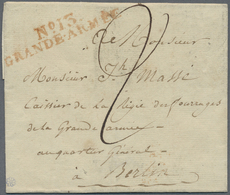 No. 13.
GRANDE-ARMÉE
A Monsieur
Monsieur Jh Massé
Caissier de la Régie des fourages
de la Grande armée
au quartier Général
à Berlin
2